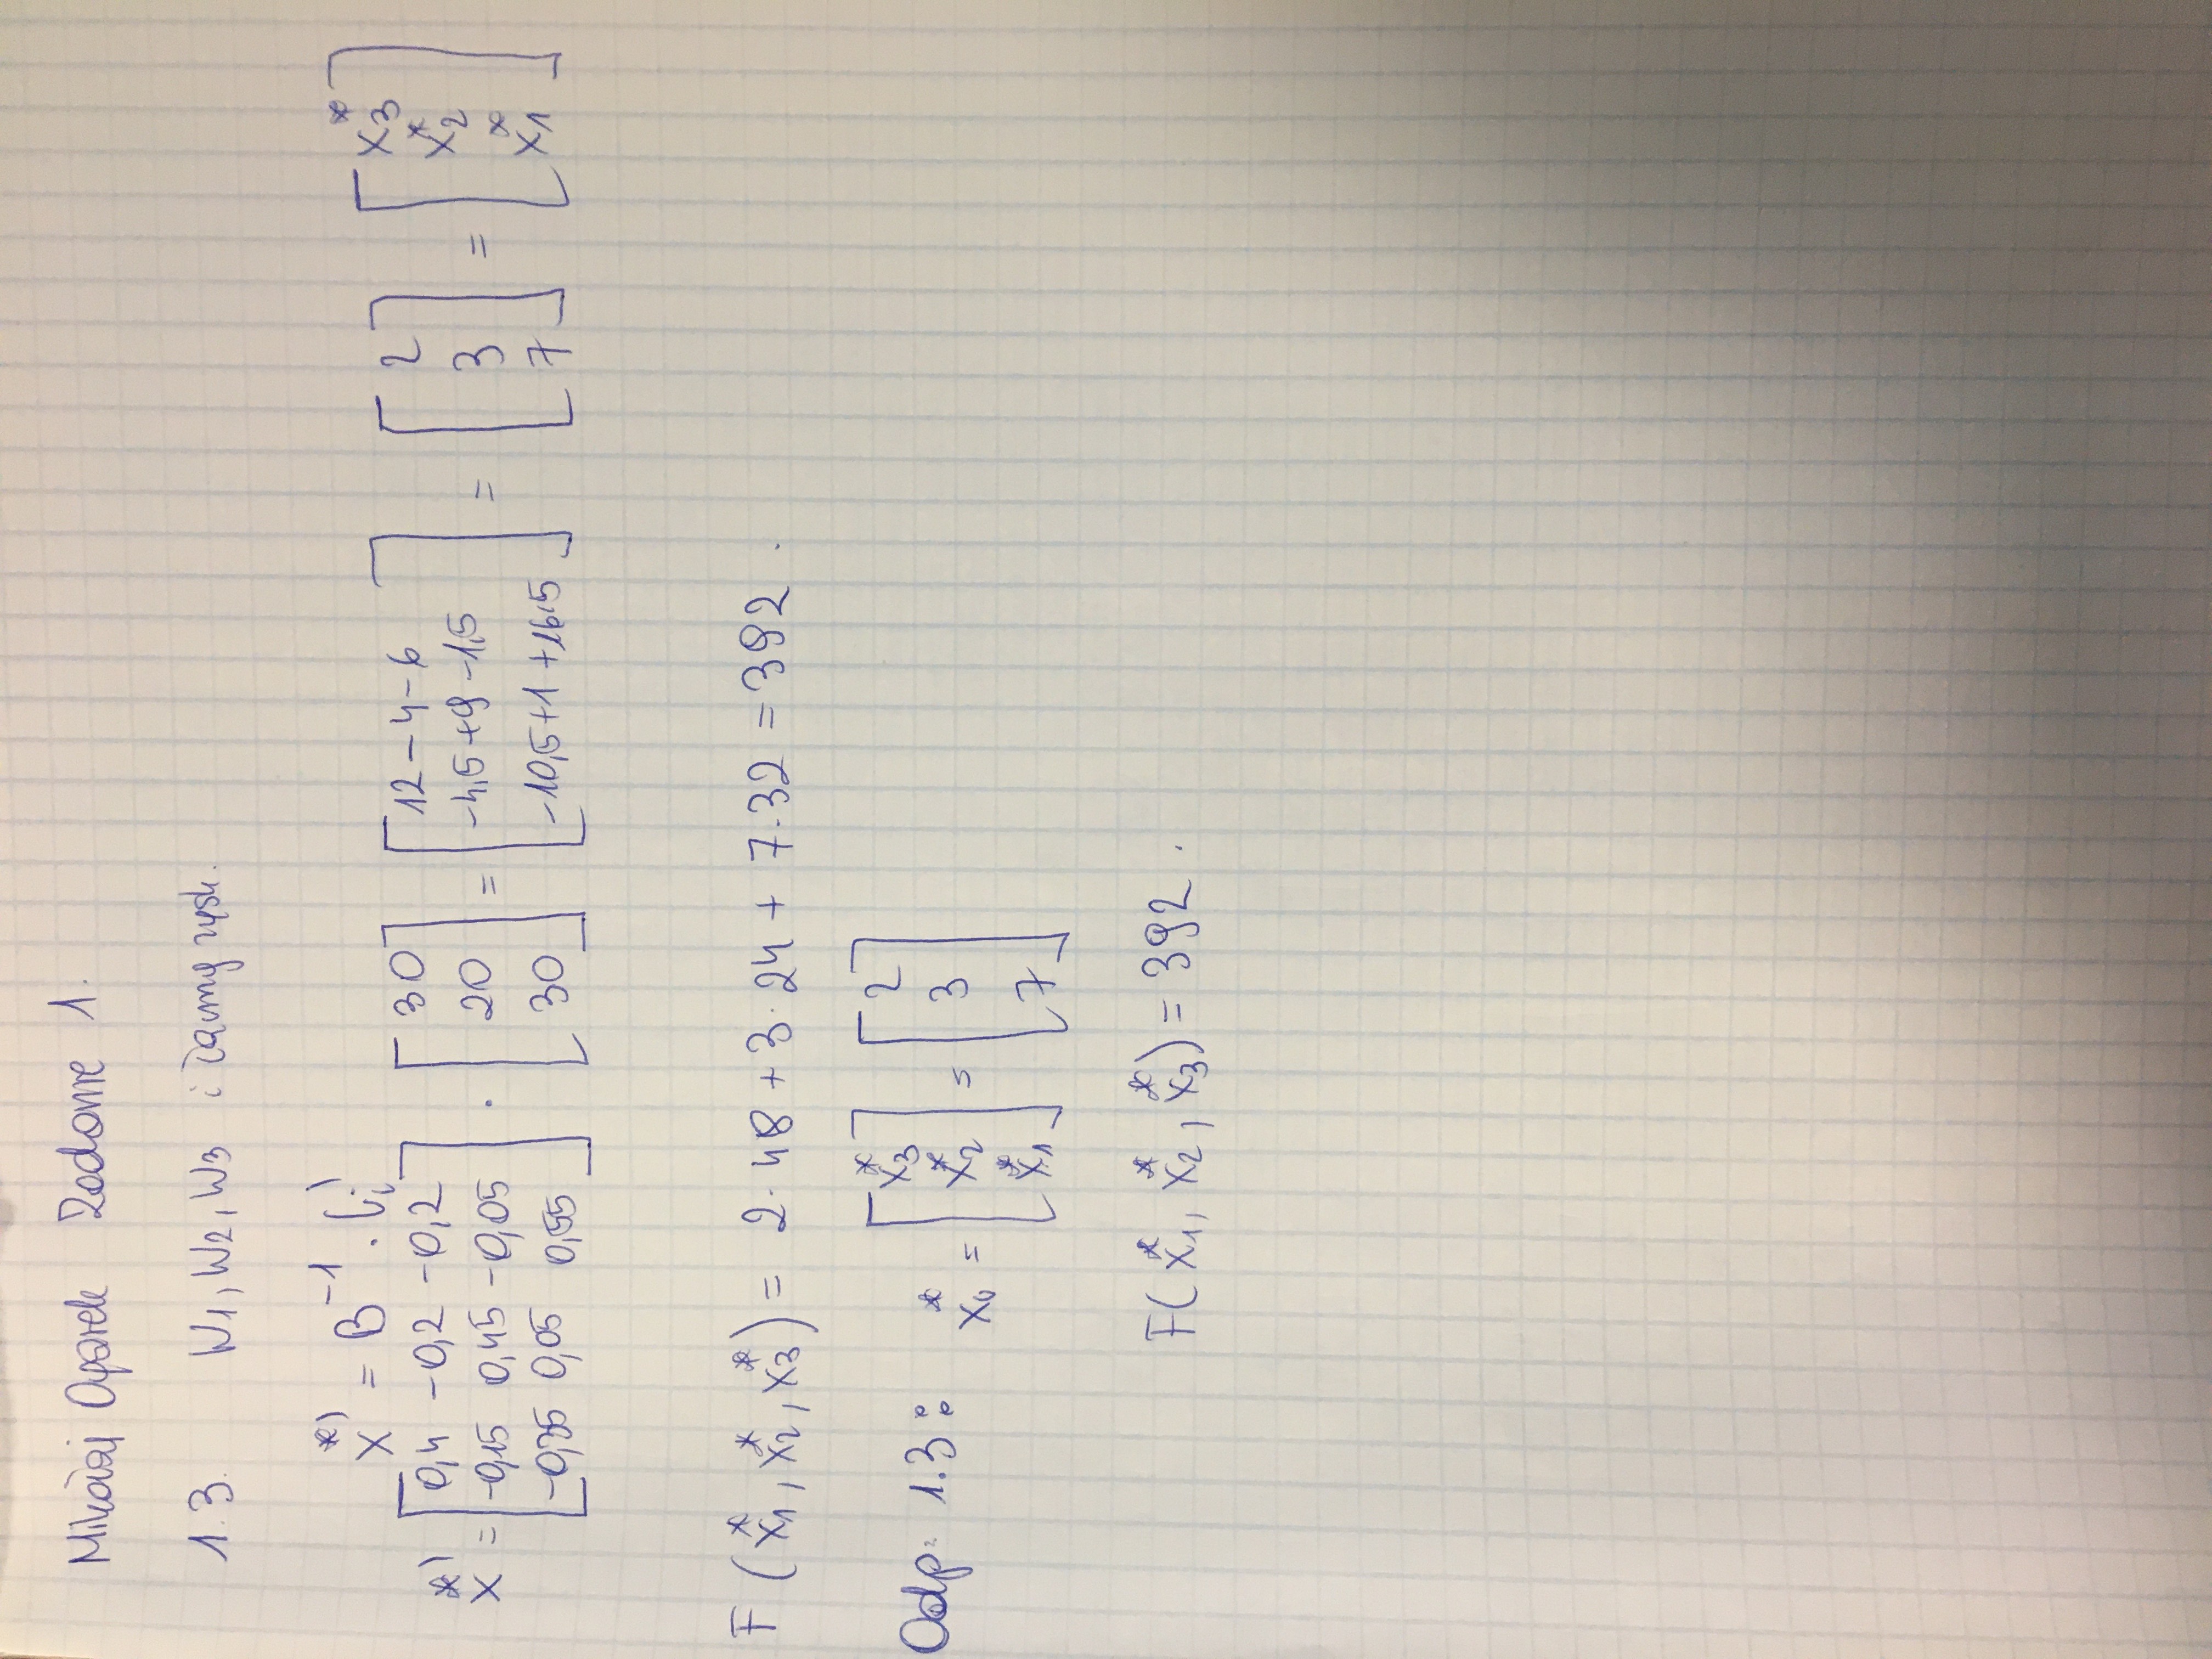 Mikołaj Ogarek Zadanie 1.
1.3. W1, W2, W3 i łączny zysk.
x*' = B⁻¹ · b'
x*' = [0,4 -0,2 -0,2; -0,15 0,45 -0,05; -0,35 0,05 0,55] · [30; 20; 30] = [12-4-6; -4,5+9-1,5; -10,5+1+16,5] = [2; 3; 7] = [x₃*; x₂*; x₁*]
F(x₁*, x₂*, x₃*) = 2·48 + 3·24 + 7·32 = 392.
Odp: 1.3: x₀* = [x₃*; x₂*; x₁*] = [2; 3; 7]
F(x₁*, x₂*, x₃*) = 392.